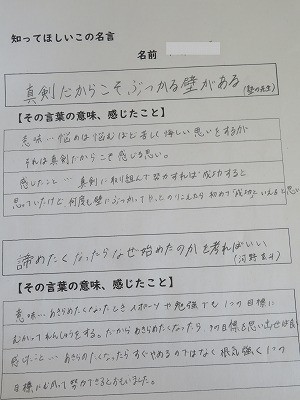 知ってほしいこの名言
名前
真剣だからこそ、ぶつかる壁がある
【その言葉の意味、感じたこと】
意味…悩めば悩むほど苦しく悔しい思いをするが
それは真剣だからこそ感じる思い。
感じたこと…真剣に取り組んで努力すれば成功すると
思っていたけど何度も壁にぶつかって
諦めたくなったらなぜ始めたのかを考ればいい
【その言葉の意味、感じたこと】
意味…あきらめたくなったとき スポーツや勉強でも1つの目標に
むかってれんしゅうをする。だからあきらめたくなったら その目標を思い出せば良い
感じたこと…あきらめたくなったらすぐやめるのではなく根気強く1つの
目標にむかって努力できるとおもいました。